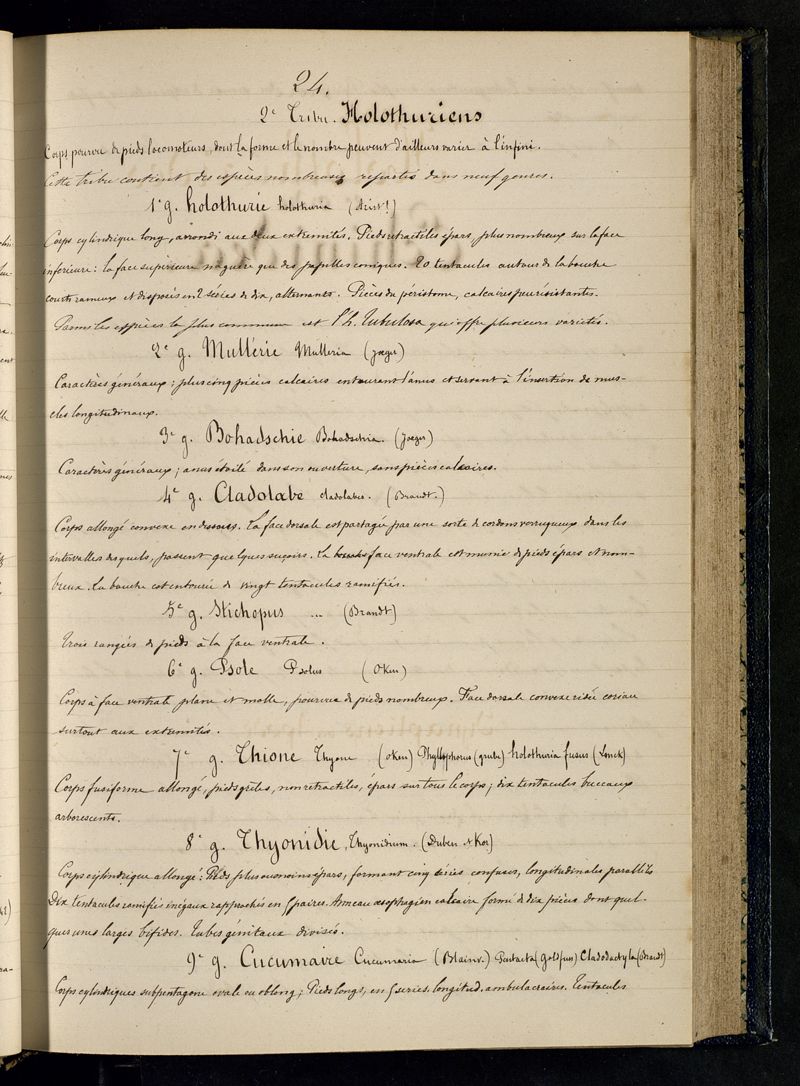 24.
2e Tribu. Holothuriens
Corps pourvu de pieds locomoteurs, dont la forme et le nombre peuvent d'ailleurs varier à l'infini.
Cette tribu contient des espèces nombreuses repartis dans neuf genres.
1er g. holothurie holothuria
Corps cylindrique long, arrondi aux deux extremités. Pieds retractiles épars, plus nombreux sur la face
inférieure : la face superieure n'a guère que des papilles coniques. 20 tentacules autour de la bouche
courts rameux et disposés en 2 séries de dix, alternants. Pièces du péristome, calcaires peu résistantes.
Parmi les espèces la plus commune est l'h. tubulosa qui offre plusieurs varietés.
2e g. Mullerie Mulleria (Jaeger)
Caractères généraux ; plus cinq pièces calcaires entourant l'anus et servant à l'insertion de mus-
cles longitudinaux.
3e g. Bohadschie Bohadschia. (Jaeger)
Caractères généraux ; anus étoilé dans son ouverture, sans pièces calcaires.
4e g. Cladolabe cladolabes. (Brandt.)
Corps allongé convexe en dessous. La face dorsale est partagée par une sorte de cordons verruqueux dans les
intervalles desquels, passent quelques suçoirs. La face ventrale est munie de pieds épars et nom-
breux. La bouche est entourée de vingt tentacules ramifiés.
5e g. Stichopus ... (Brandt)
Trois rangées de pieds à la face ventrale.
6e g. Psole Psolus (Oken)
Corps à face ventrale plane et molle, pourvue de pieds nombreux. Face dorsale convexe coriace
surtout aux extremités.
7e g. Thione Thyone (Oken) Phyllophorus (grube) holothuria fusus (Lmck)
Corps fusiforme allongé, pieds grêles, non retractiles, épars sur tous le corps ; dix tentacules buccaux
arborescents.
8e g. Thyonidie, Thyonidium. (Duben et Kor)
Corps cylindrique allongé ; Pieds plus ou moins épars, formant cinq séries confuses, longitudinales parallèles
Dix tentacules ramifiés inégaux rapprochés en 5 paires. Anneau œsophagien calcaire formé de dix pièces dont quel-
ques unes larges bifides. Tubes génitaux divisés.
9e g. Cucumaire Cucumaria (Blainv.) Pentacta (Goldfuss) Cladodactyla (Brandt)
Corps cylindriques subpentagone ovale ou oblong ; Pieds longs, en 5 series longitud. ambulacraires. Tentacules